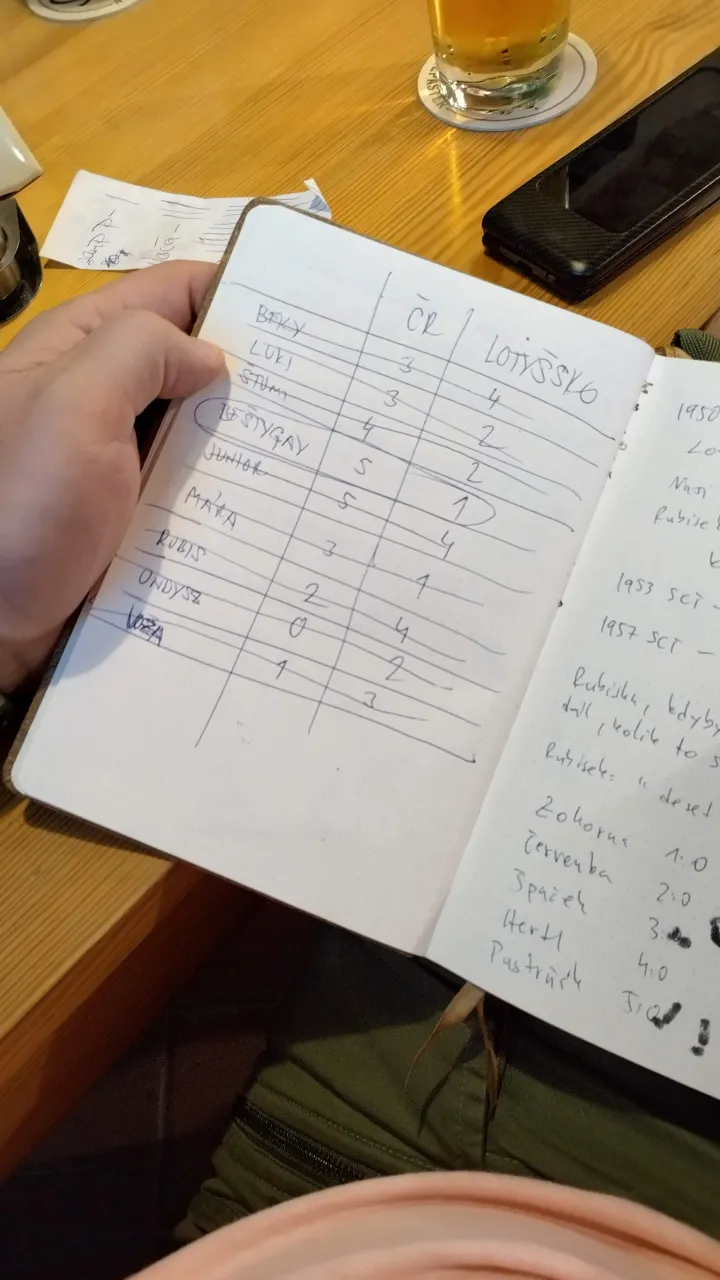 ČR LOTYŠSKO
BEKY 3 4
LUKI 3 2
STUMI 4 2
BEŠTYGAY 5 1
JUNIOR 5 4
MÁRA 3 1
RUBIS 2 4
ONDYSZ 0 2
VOŽA 1 3
Naši
1953 SCT -
1957 SCT -
Rubisku, kdyby
dal, kolik to s
Rubisek: " deset
Zohorna 1:0
Červenka 2:0
Špaček 3:
Hertl 4:0
Pastrňák 5:0 !